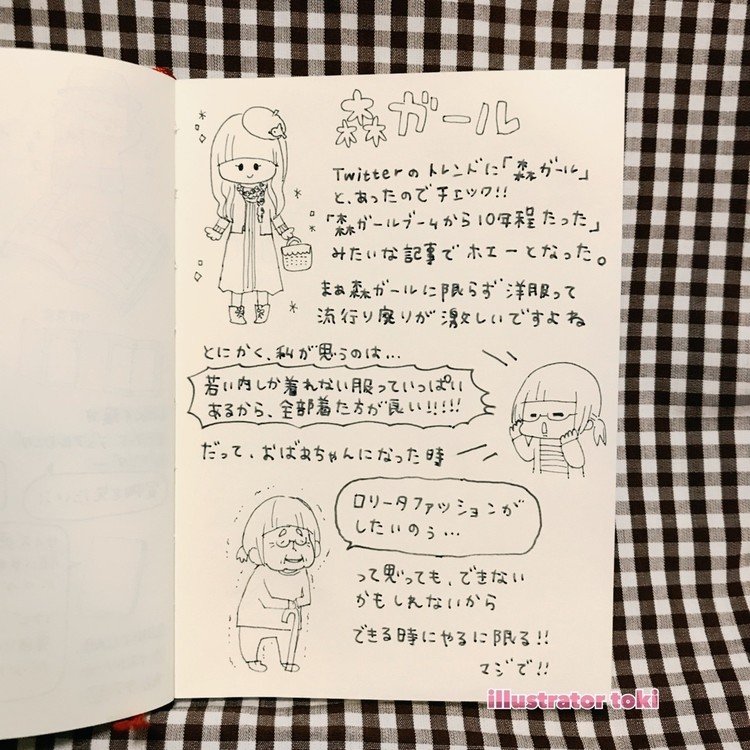 森ガール
Twitterのトレンドに「森ガール」
と、あったのでチェック!!
「森ガールブームから10年程たった」
みたいな記事でホエーとなった。
まぁ森ガールに限らず洋服って
流行り廃りが激しいですよね
とにかく、私が思うのは…
若い内しか着れない服っていっぱい
あるから、全部着た方が良い!!!!!
だって、おばあちゃんになった時
ロリータファッションが
したいのぅ…
って思っても、できない
かもしれないから
できる時にやるに限る!!
マジで!!
illustrator toki